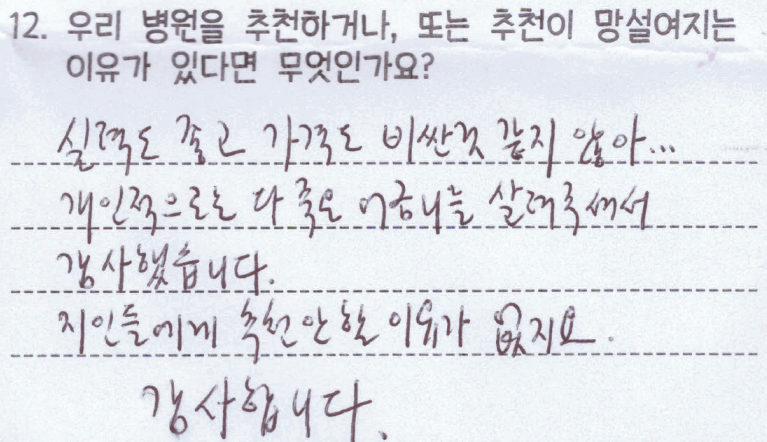 12. 우리 병원을 추천하거나, 또는 추천이 망설여지는
이유가 있다면 무엇인가요?
실력도 좋고 가격도 비싼것 같지 않아...
개인적으로는 다 죽은 어금니를 살려주셔서
감사했습니다.
지인들에게 추천 안할 이유가 없지요.
감사합니다.